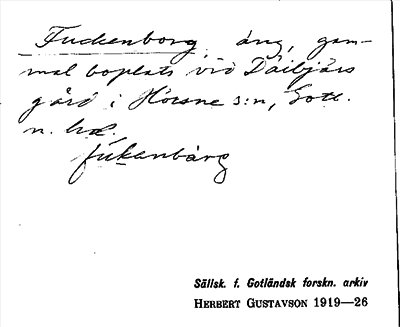 Fuckenborg, äng, gam-
mal boplats vid Dåibjärs
gård i Hörsne s:n, Gotl.
n. hd.
fúkanbàrg
Sällsk. f. Gotländsk forskn. arkiv
HERBERT GUSTAVSON 1919—26